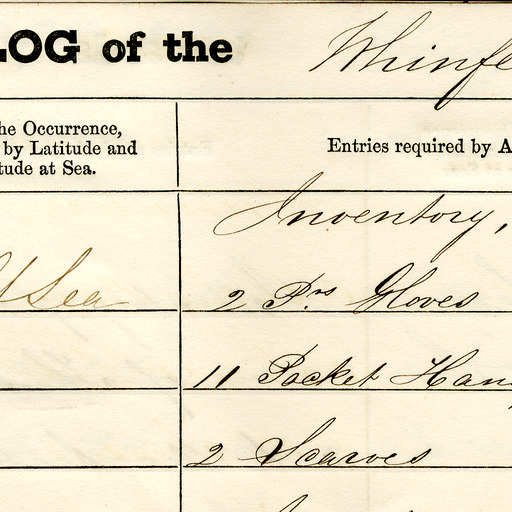 LOG of the Whinfe
he Occurrence,
by Latitude and
tude at Sea.
Entries required by A
Inventory,
At Sea
2 Prs Gloves
11 Pocket Han
2 Scarves